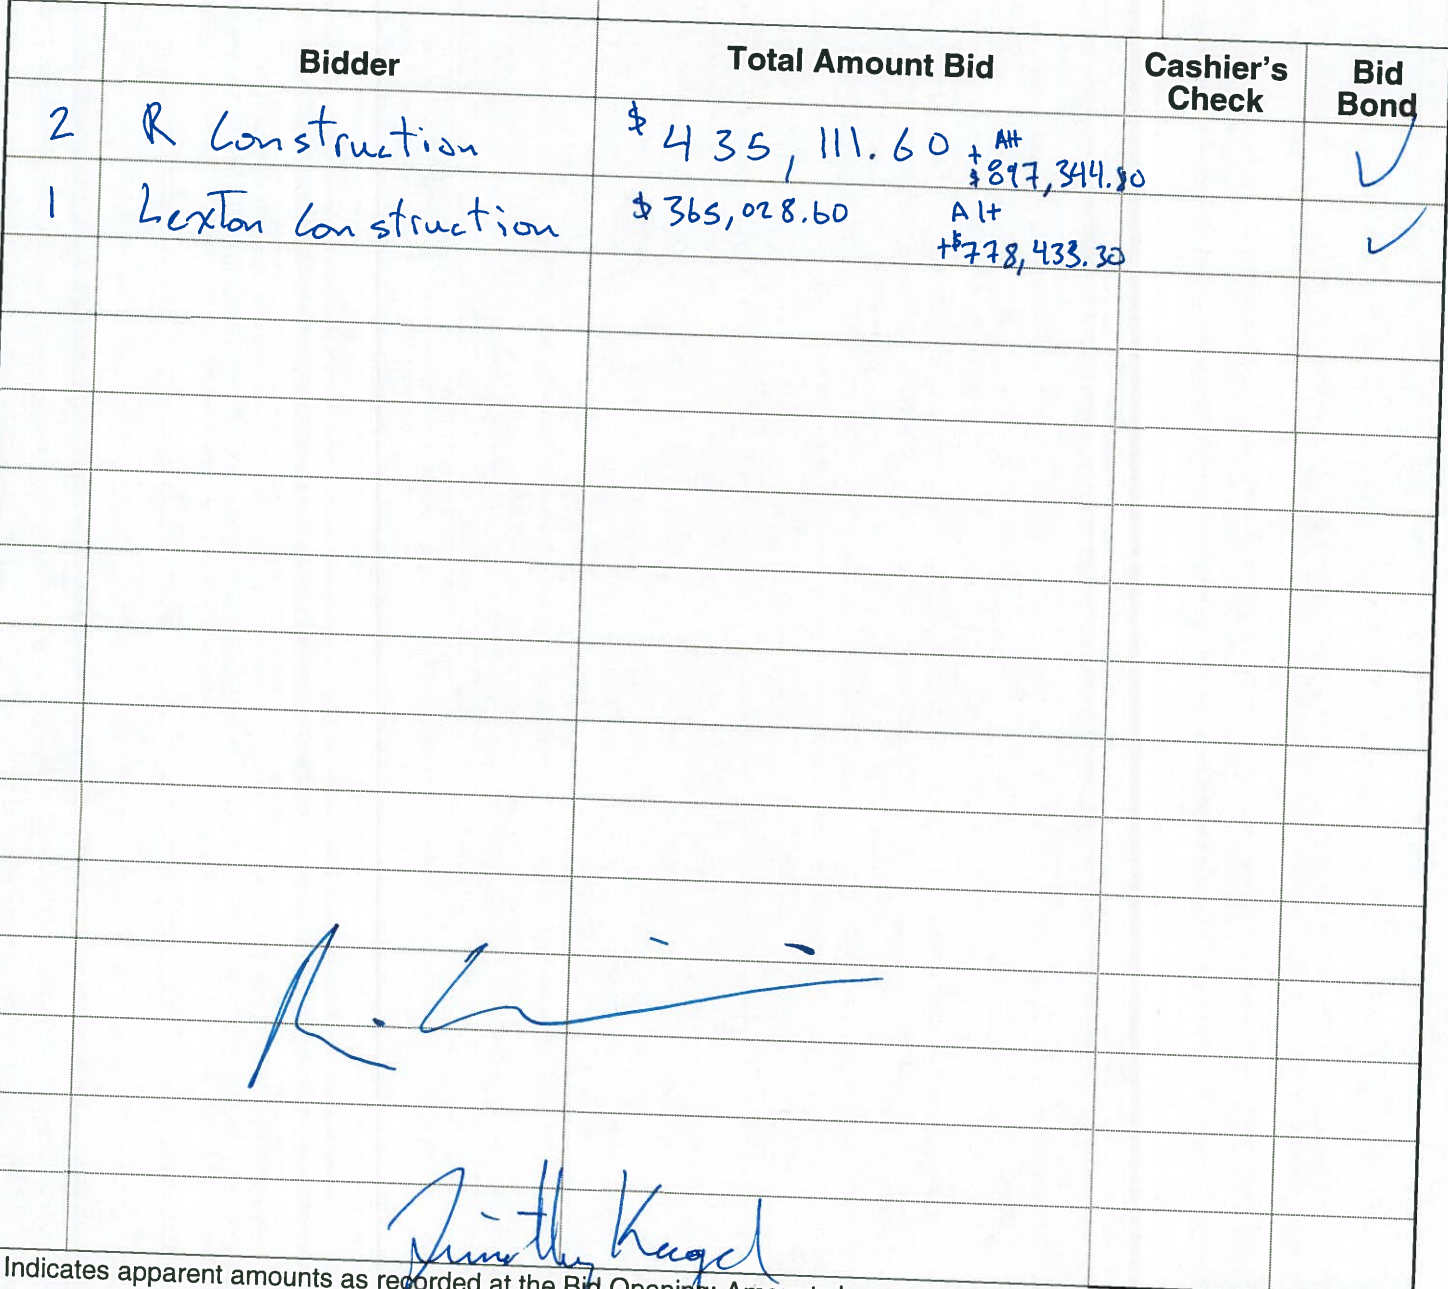 Bidder Total Amount Bid Cashier's Check Bid Bond
2 R Construction $ 435,111.60 + Alt $897,344.80 ✓
1 Lexton Construction $365,028.60 Alt +$778,433.30 ✓
Timothy Kagel
Indicates apparent amounts as recorded at the Bid Opening.